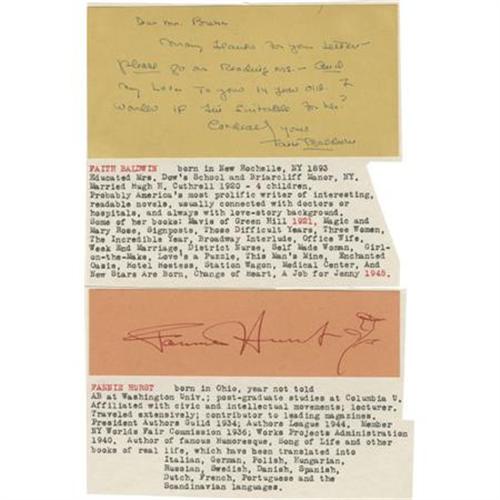 Dear Mr. Brown
Many thanks for your letter -
please go on Reading me - And
my love to your 14 year old. I
wonder if I'm suitable for her?
Cordially yours
Faith Baldwin
FAITH BALDWIN born in New Rochelle, NY 1893
Educated Mrs. Dow's School and Briarcliff Manor, NY.
Married Hugh H. Cuthrell 1920 - 4 children.
Probably America's most prolific writer of interesting,
readable novels, usually connected with doctors or
hospitals, and always with love-story background.
Some of her books: Mavis of Green Hill 1921, Magic and
Mary Rose, Signposts, Those Difficult Years, Three Women,
The Incredible Year, Broadway Interlude, Office Wife,
Week End Marriage, District Nurse, Self Made Woman, Girl-
on-the-Make, Love's a Puzzle, This Man's Mine, Enchanted
Oasis, Hotel Hostess, Station Wagon, Medical Center, And
New Stars Are Born, Change of Heart, A Job for Jenny 1945.
Fannie Hurst
FANNIE HURST born in Ohio, year not told
AB at Washington Univ.; post-graduate studies at Columbia U.
Affiliated with civic and intellectual movements; lecturer.
Traveled extensively; contributor to leading magazines.
President Authors Guild 1934; Authors League 1944, Member
NY Worlds Fair Commission 1936; Works Projects Administration
1940. Author of famous Humoresque, Song of Life and other
books of real life, which have been translated into
Italian, German, Polish, Hungarian,
Russian, Swedish, Danish, Spanish,
Dutch, French, Portuguese and the
Scandinavian languages.